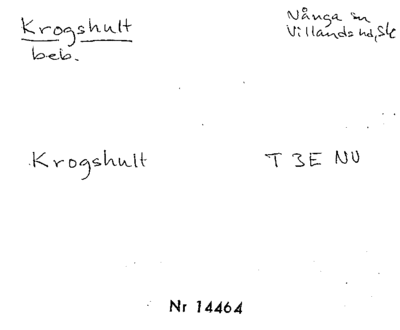 Krogshult
beb.
Nånga sn
Villands hd, Sk
Krogshult
T 3E NU
Nr 14464